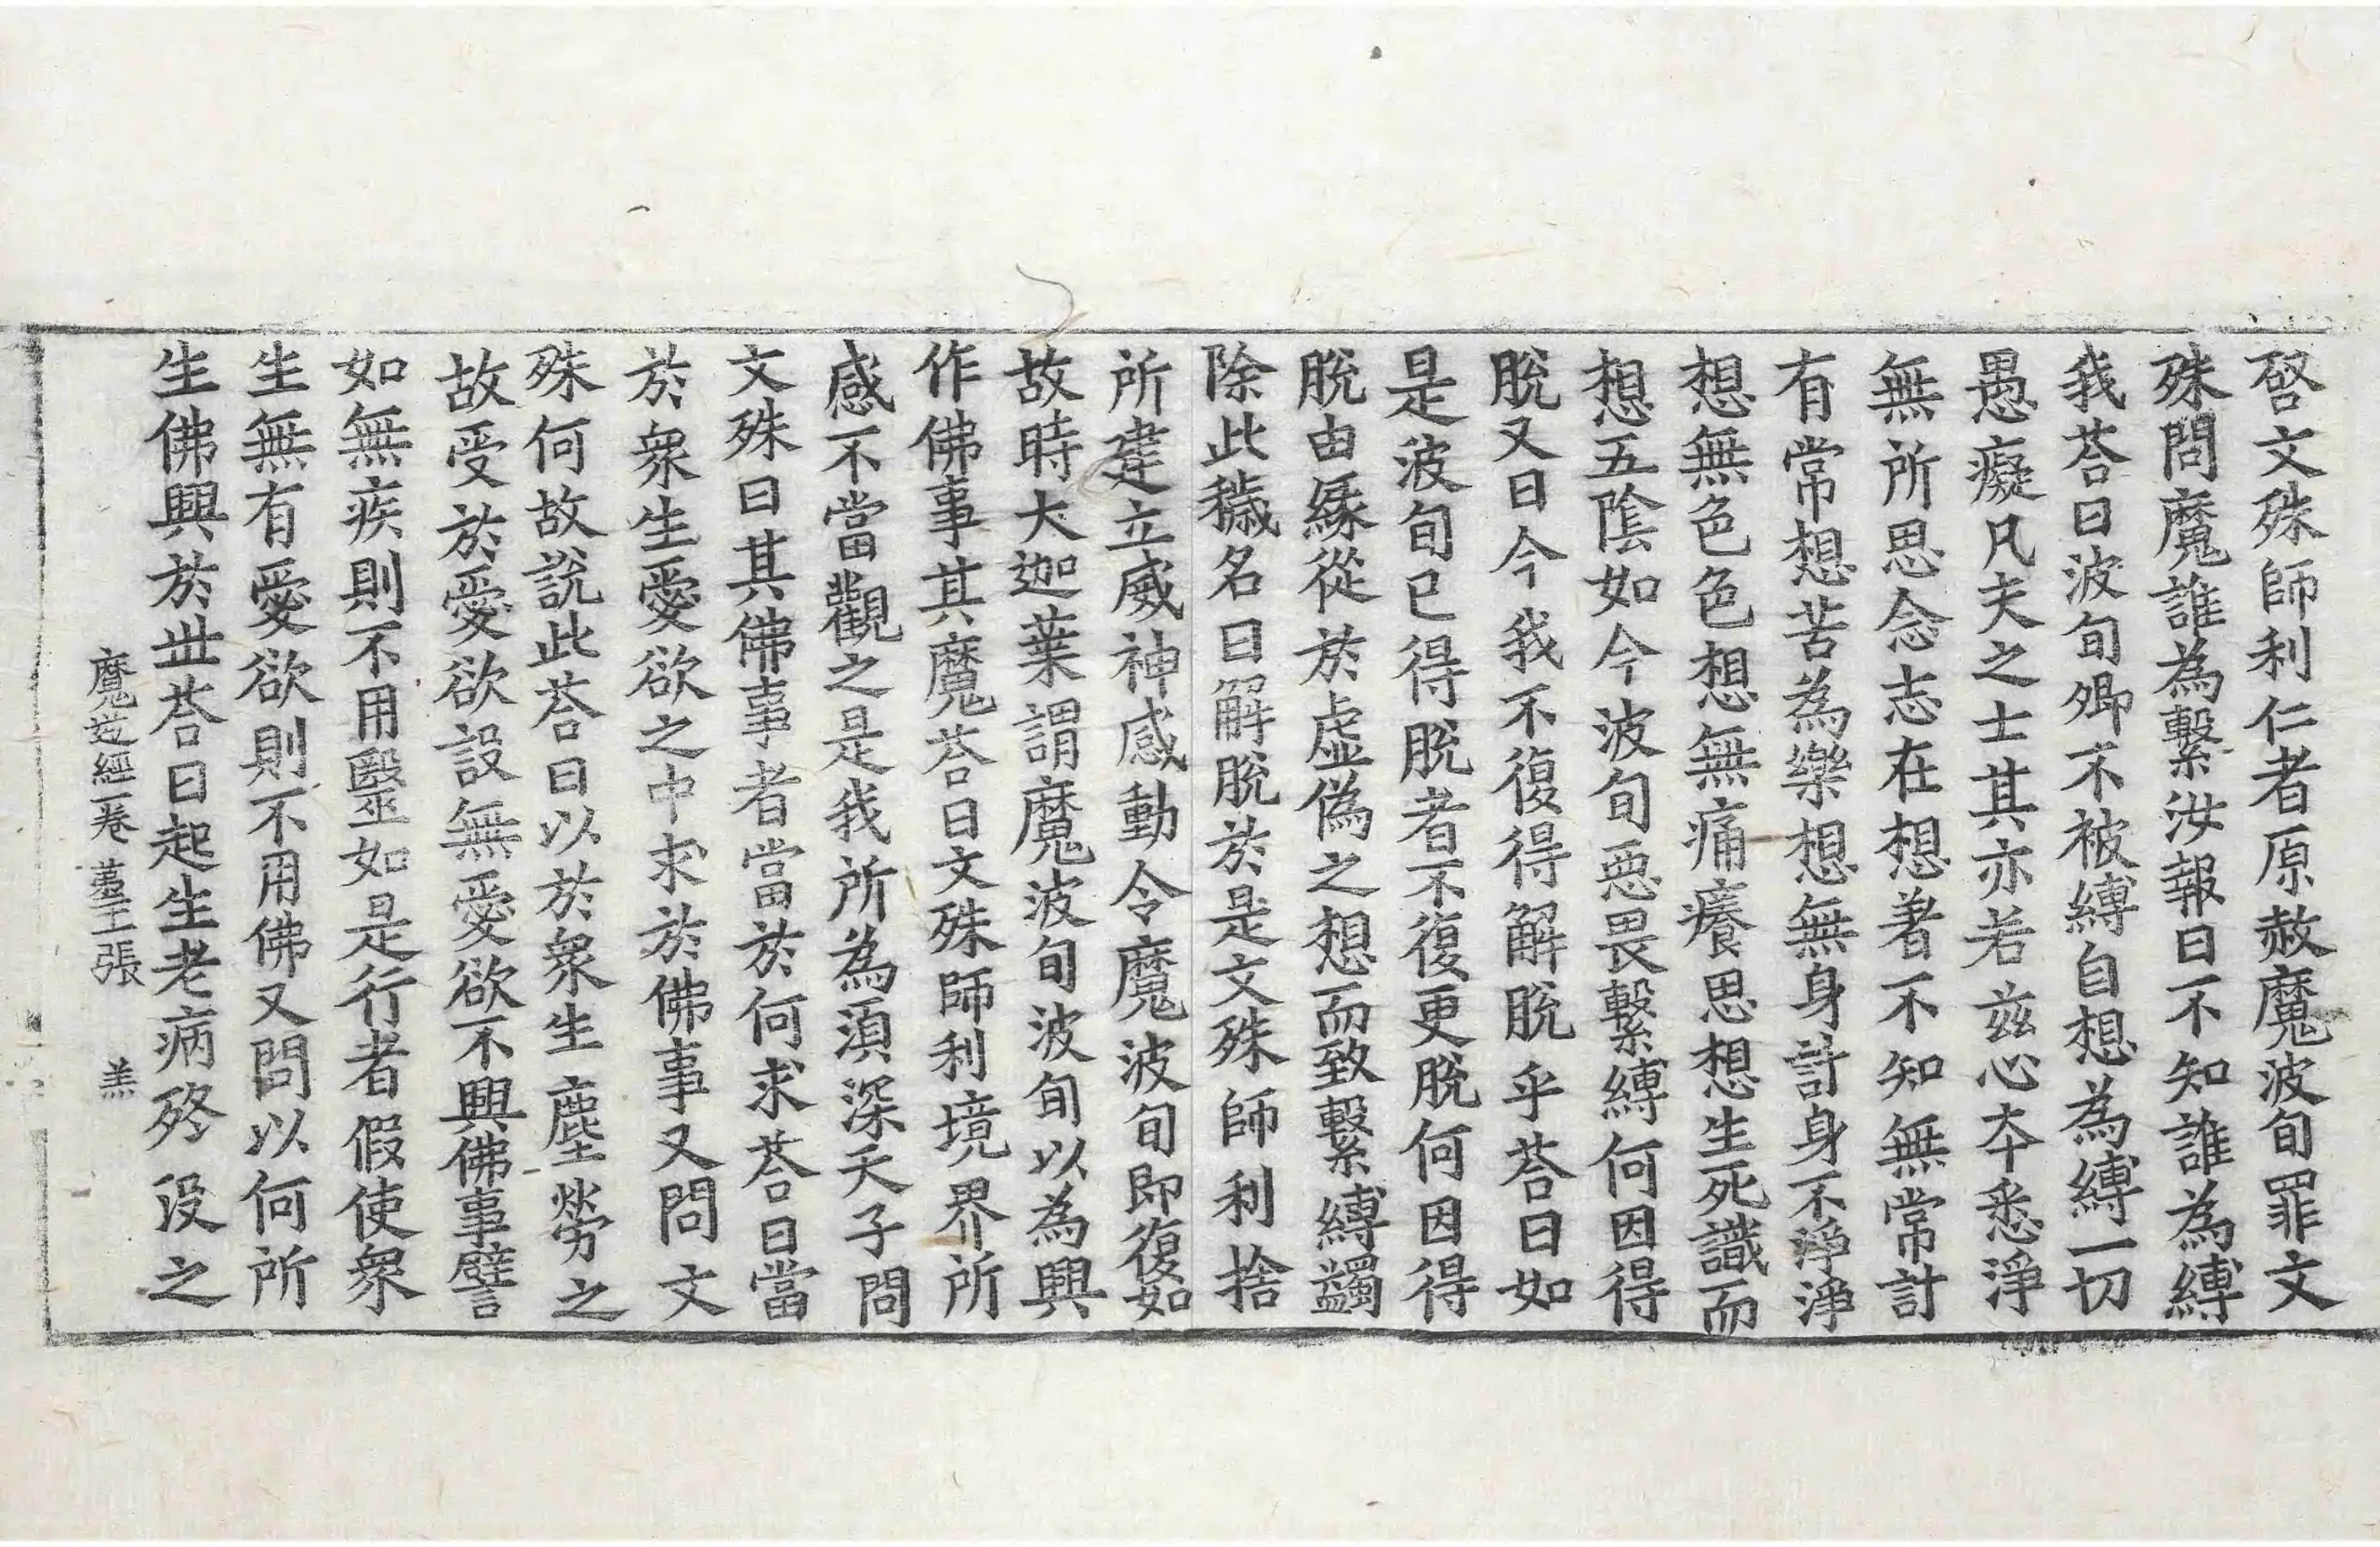 啓文殊師利仁者原赦魔波旬罪文
殊問魔誰為繫汝報曰不知誰為縛
我荅曰波旬卿不被縛自想為縛一切
愚癡凡夫之士其亦若茲心夲悉淨
無所思念志在想著不知無常計
有常想苦為樂想無身計身不淨淨
想無色色想無痛痛痒思想生死識而
想五陰如今波旬惡畏繫縛何因得
脫又曰今我不復得解脫乎荅曰如
是波旬已得脫者不復更脫何因得
脫由緣從於虛偽之想而致繫縛蠲
除此穢名曰解脫於是文殊師利捨
所建立威神感動令魔波旬即復如
故時大迦葉謂魔波旬波旬以為興
作佛事其魔荅曰文殊師利境界所
感不當觀之是我所為湏深天子問
文殊曰其佛事者當於何求荅曰當
於衆生愛欲之中求於佛事又問文
殊何故說此荅曰以於衆生塵勞之
故受於愛欲設無愛欲不興佛事譬
如無疾則不用毉如是行者假使衆
生無有愛欲則不用佛又問以何所
生佛興於丗荅曰起生老病終没之
魔逆經一卷 第三張 羔